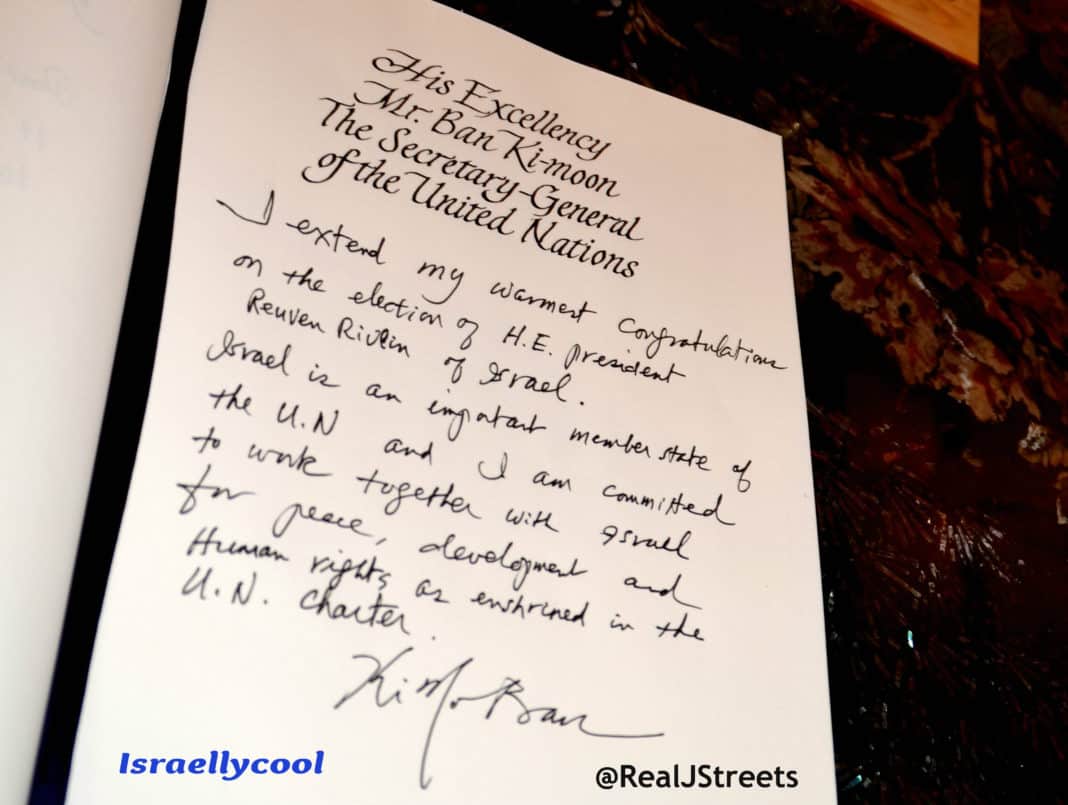 His Excellency
Mr. Ban Ki-moon
The Secretary-General
of the United Nations
I extend my warmest congratulations
on the election of H.E. president
Reuven Rivlin of Israel.
Israel is an important member state of
the U.N and I am committed
to work together with Israel
for peace, development and
Human rights as enshrined in the
U.N. Charter.
Ki Mo Ban
Israellycool
@RealJStreets